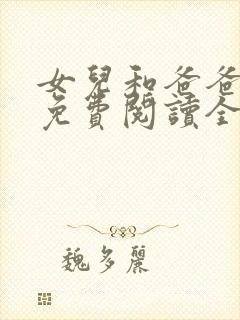 女兒和爸爸
免費閱讀全
魏多麗